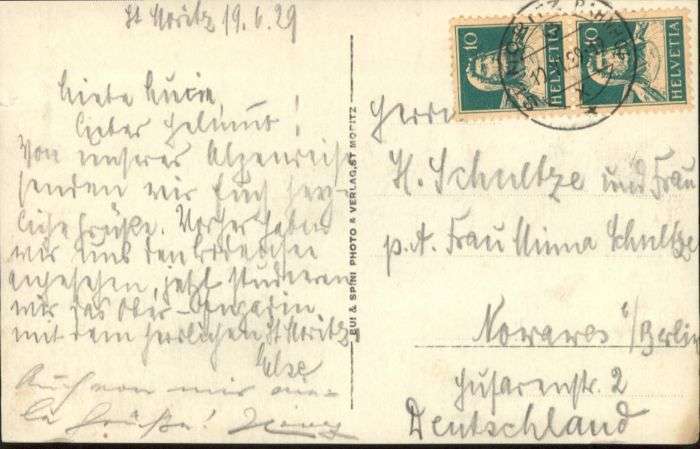 St Moritz 19.6.29
Liebe Lucie,
Lieber Helmut!
Von unserer Alpenreise
senden wir Euch herz-
liche Grüße. Vorher haben
wir uns den Bodensee
angesehen, jetzt studieren
wir das Ober-Engadin
mit dem herrlichen St Moritz
Else
Auch von mir vie-
le Grüße!
RUI & SPINI PHOTO & VERLAG, ST MORITZ
10 HELVETIA
10 HELVETIA
Herrn
H. Schultze und Frau
p.A. Frau Minna Schultze
Nowawes b/Berlin
Husarenstr. 2
Deutschland